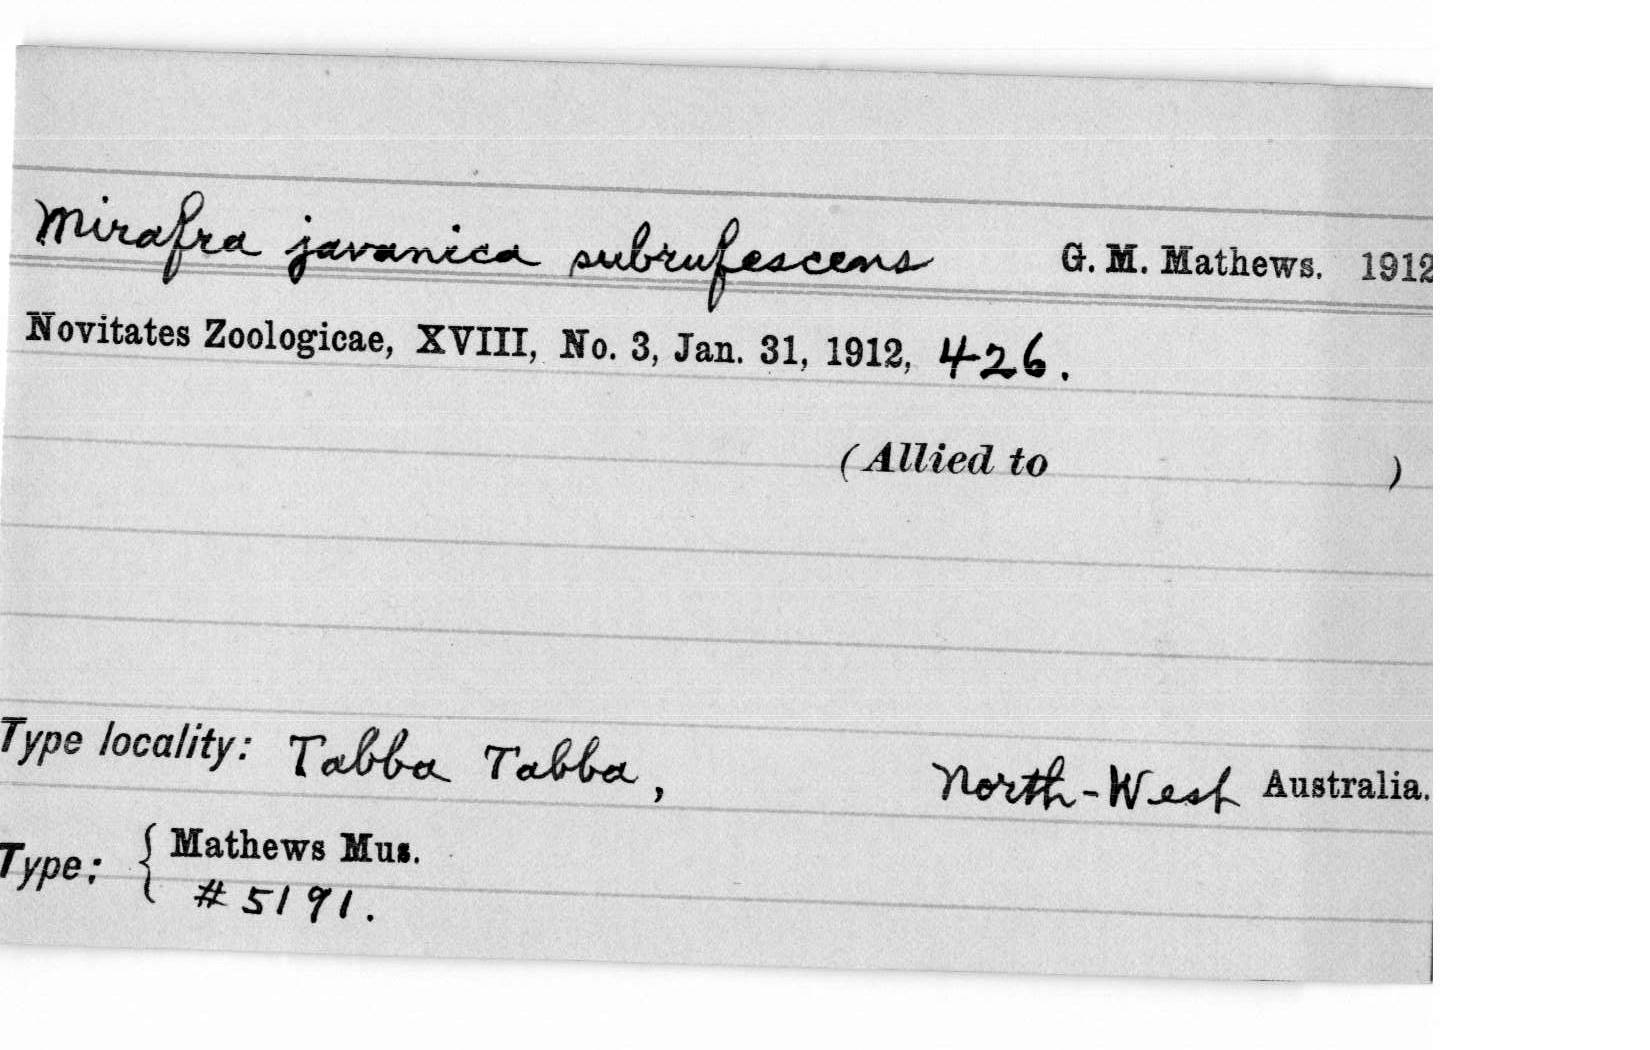 Mirafra javanica subrufescens G. M. Mathews. 1912
Novitates Zoologicae, XVIII, No. 3, Jan. 31, 1912, 426.
(Allied to )
Type locality: Tabba Tabba, North-West Australia.
Type: { Mathews Mus.
#5191.